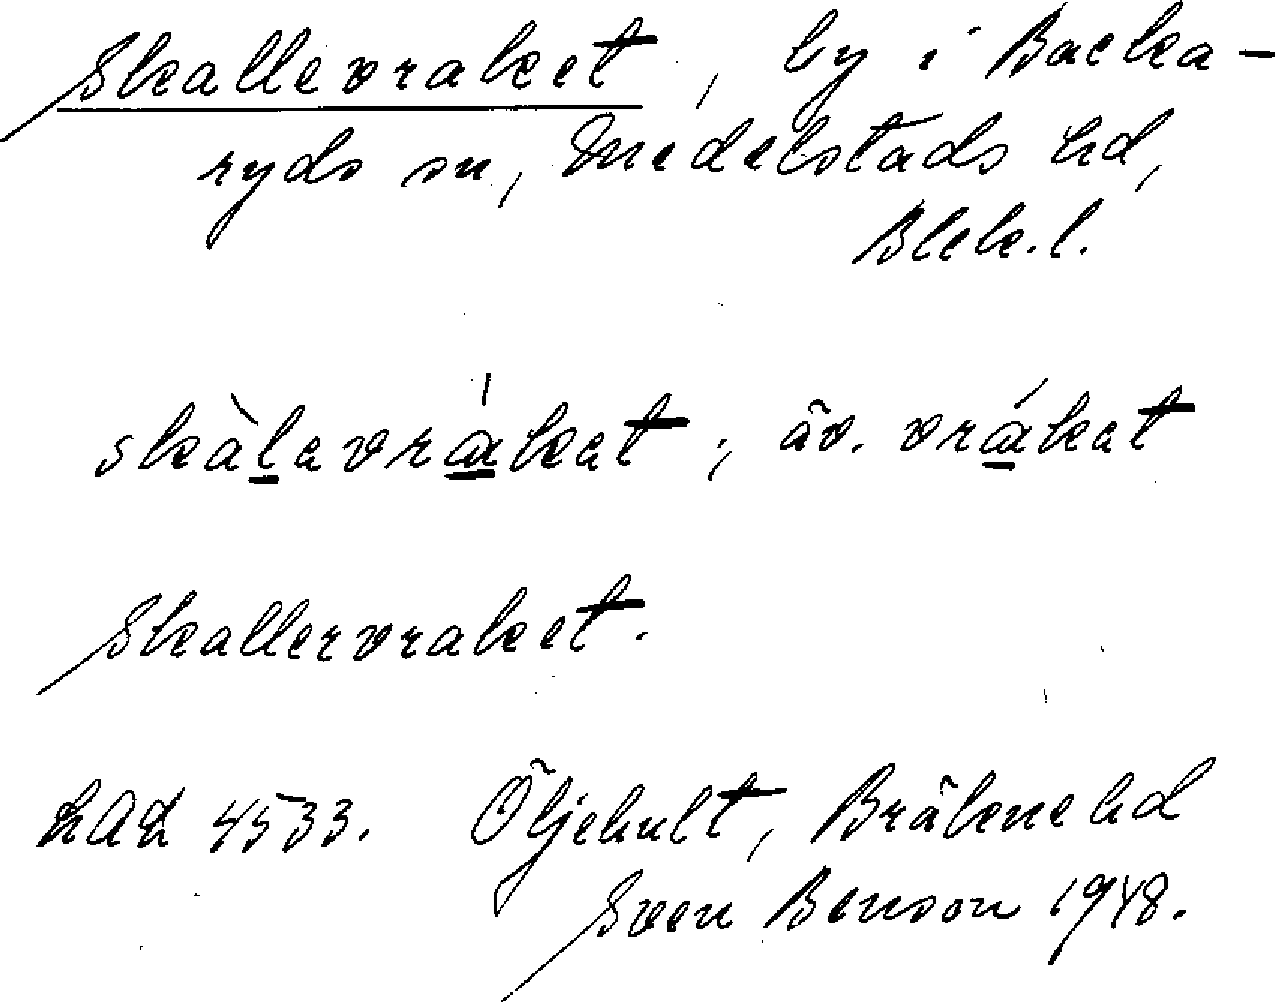 Skallevraket, by i Backa-
ryds sn, Medelstads hd,
Blek.l.
skàlavrákat, äv. vrákat
Skallervraket.
LAL 4533. Öljehult, Bräkne hd
Sven Benson 1948.